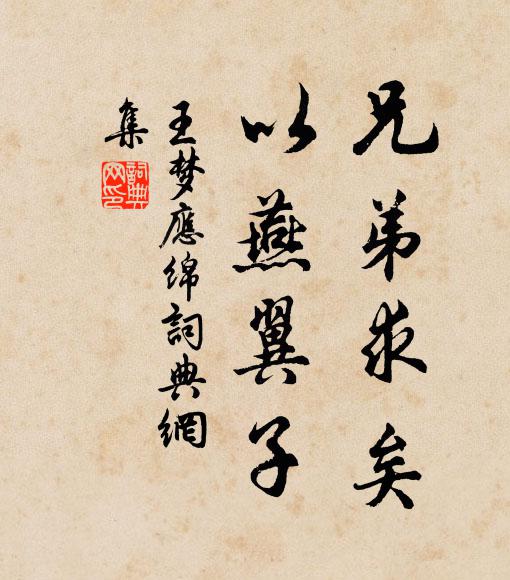 兄弟求矣
以燕翼子
王梦應绵詞典網
集
詞典
网印